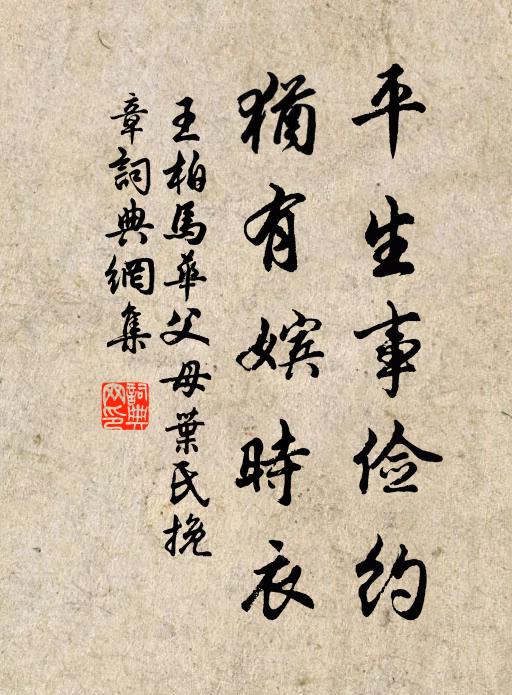 平生事俭约
猶有嬪時衣
王柏馬華父母葉氏挽
章詞典網集
詞典
网印